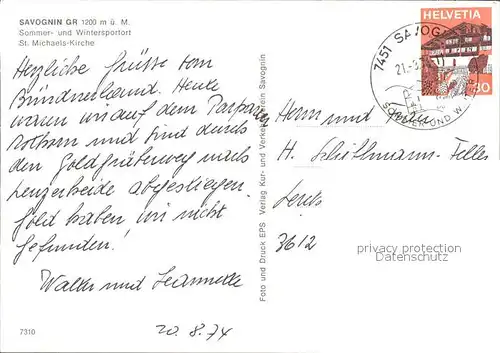 SAVOGNIN GR 1200 m ü. M.
Sommer- und Wintersportort
St. Michaels-Kirche
Herzliche Grüsse vom
Bündnerland. Heute
waren wir auf dem Parpaner
Rothorn und sind durch
den Goldgräberweg nach
Lenzerheide abgestiegen.
Gold haben wir nicht
gefunden!
Walter und Jeannette
20. 8. 74
7310
Foto und Druck EPS Verlag Kur- und Verkehrsverein Savognin
HELVETIA
30
7451 SAVOGNIN
21.-8.
SOMMER UND WINTER
Herrn und Frau
H. Schüthmann-Feller
3612
privacy protection
Datenschutz